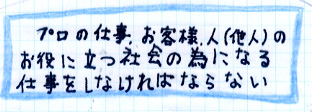 プロの仕事、お客様、人(他人)の
お役に立つ社会の為になる
仕事をしなければならない